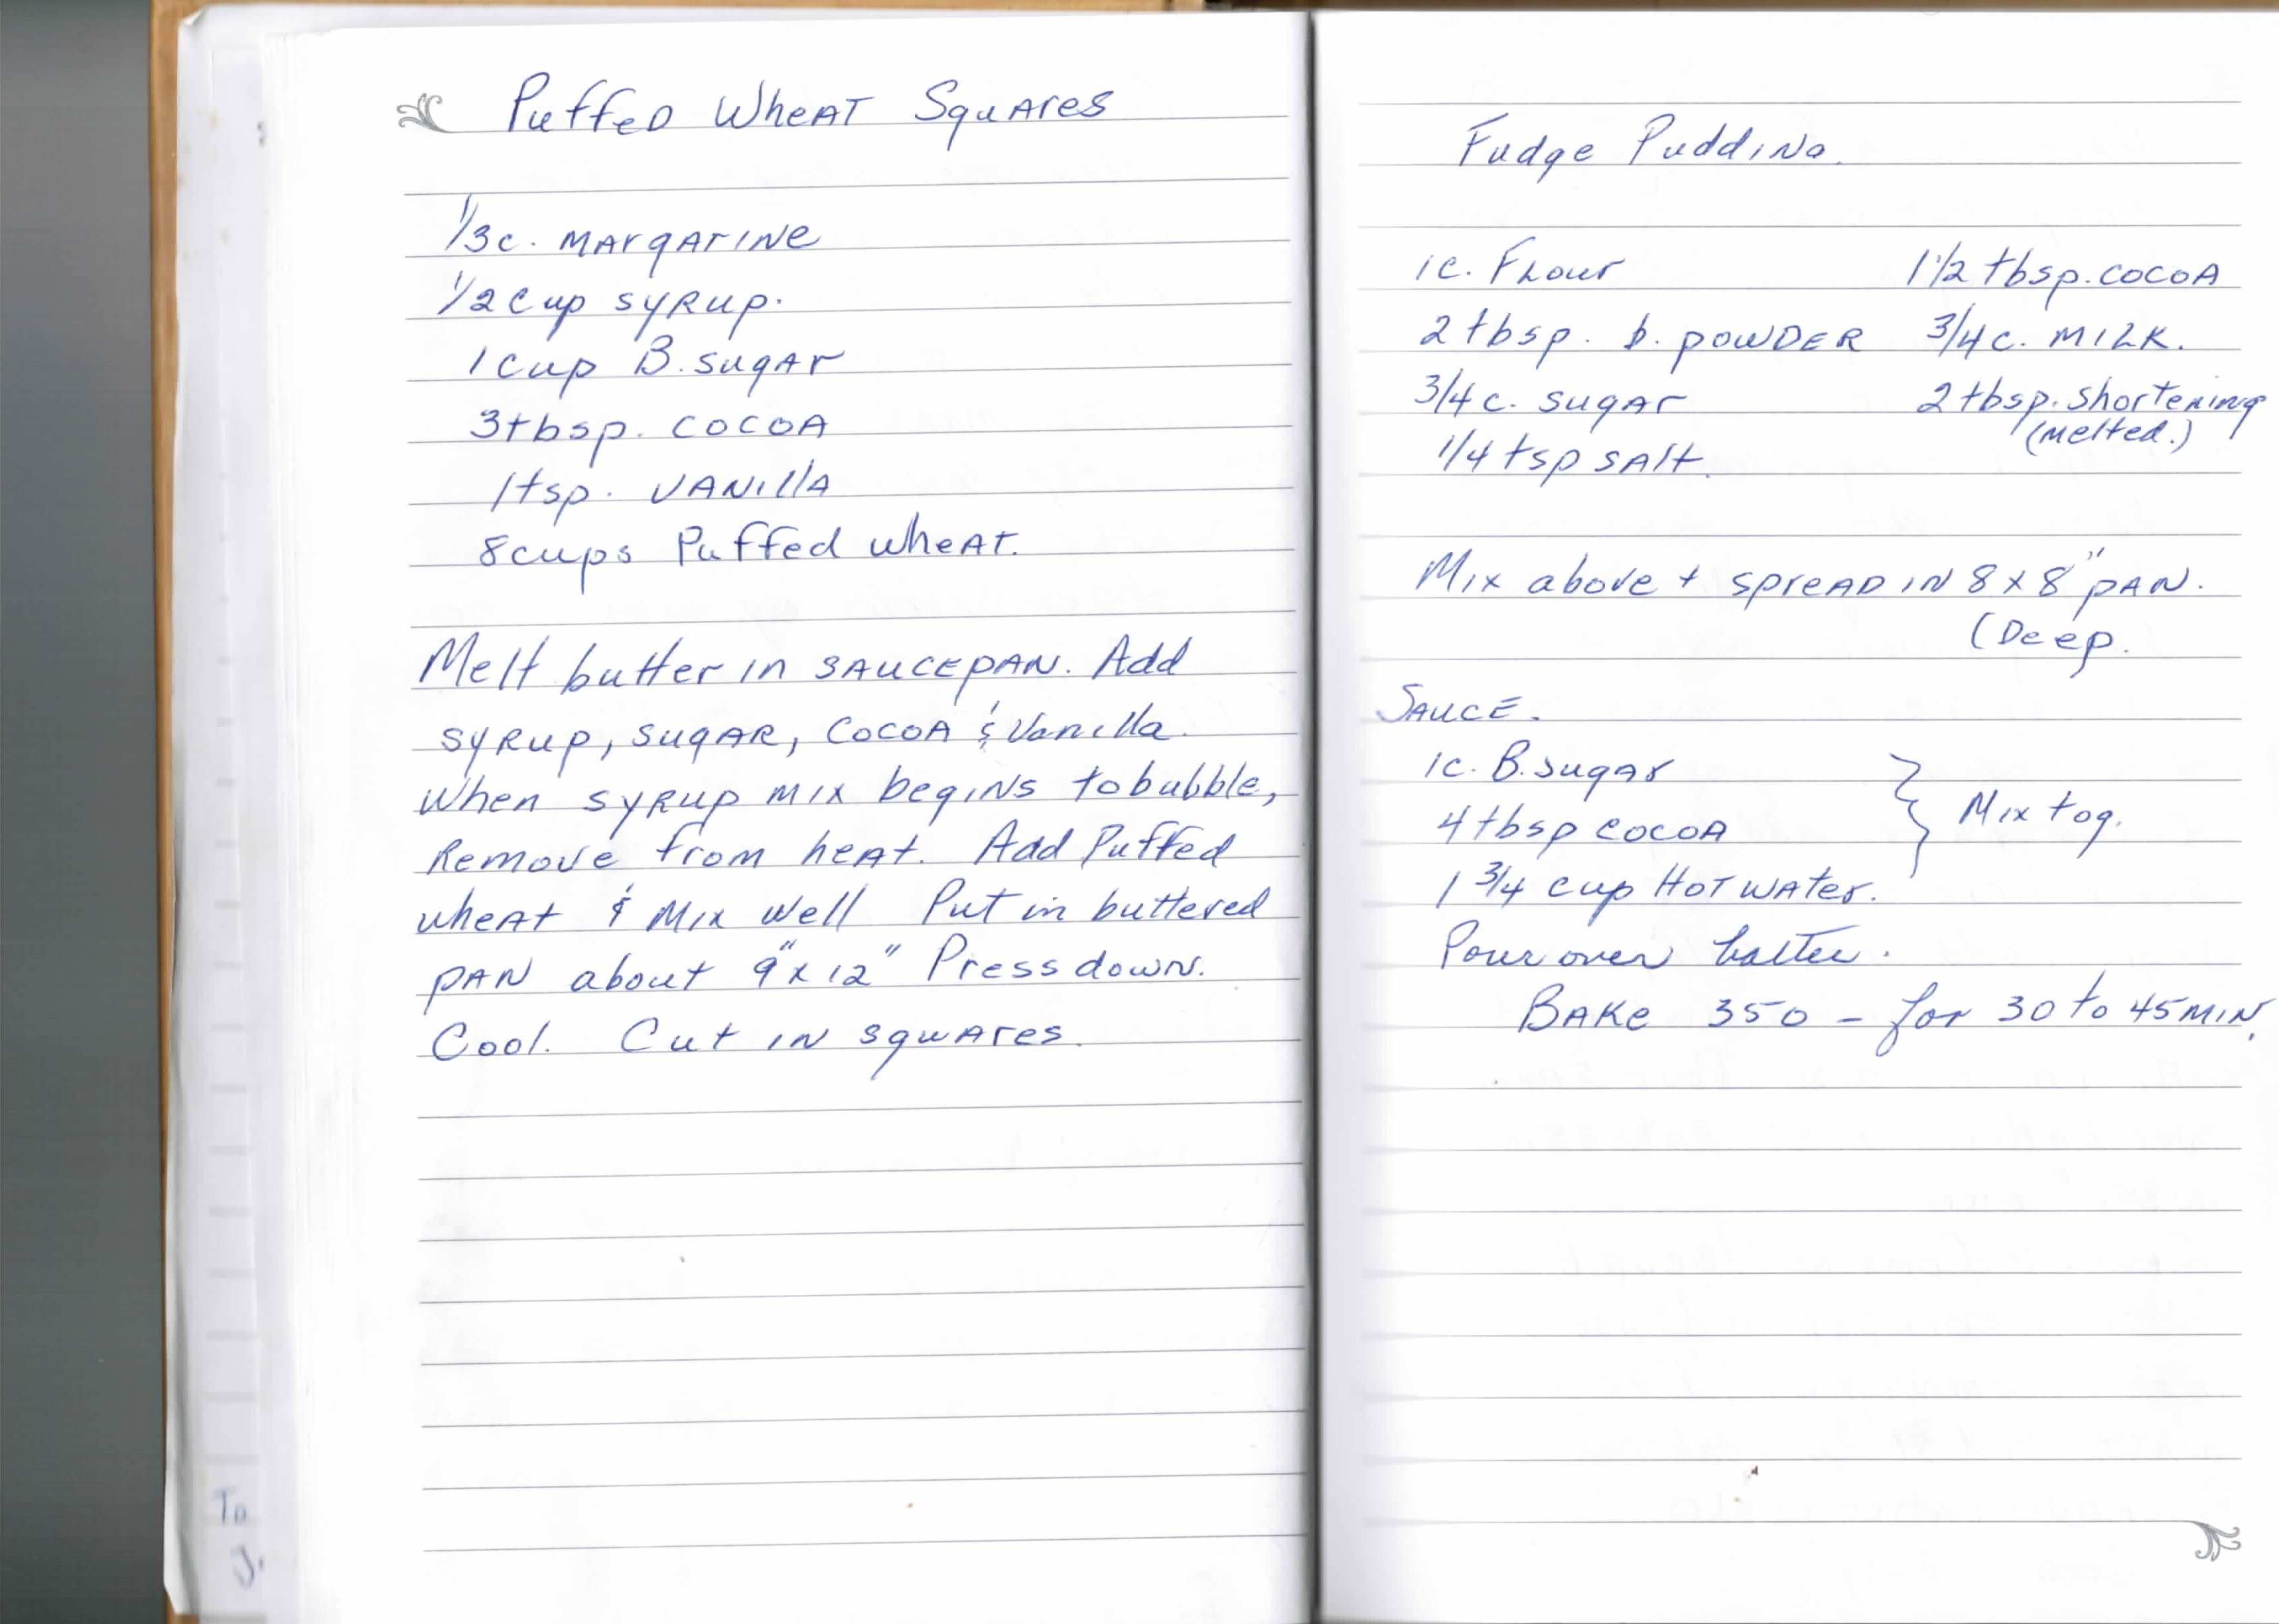 Puffed Wheat Squares
1/3 c. margarine
1/2 cup syrup.
1 cup B. sugar
3 tbsp. cocoa
1 tsp. vanilla
8 cups Puffed wheat.
Melt butter in saucepan. Add
syrup, sugar, cocoa & Vanilla.
When syrup mix begins to bubble,
Remove from heat. Add Puffed
wheat & Mix Well Put in buttered
pan about 9" x 12" Press down.
Cool. Cut in squares.
Fudge Pudding.
1 c. Flour 1 1/2 tbsp. cocoa
2 tbsp. b. powder 3/4 c. milk.
3/4 c. sugar 2 tbsp. shortening
1/4 tsp salt. (melted.)
Mix above + spread in 8 x 8" pan.
(Deep.
Sauce.
1 c. B. sugar
4 tbsp cocoa } Mix tog.
1 3/4 cup Hot water.
Pour over batter.
Bake 350 - for 30 to 45 min.
To
J.